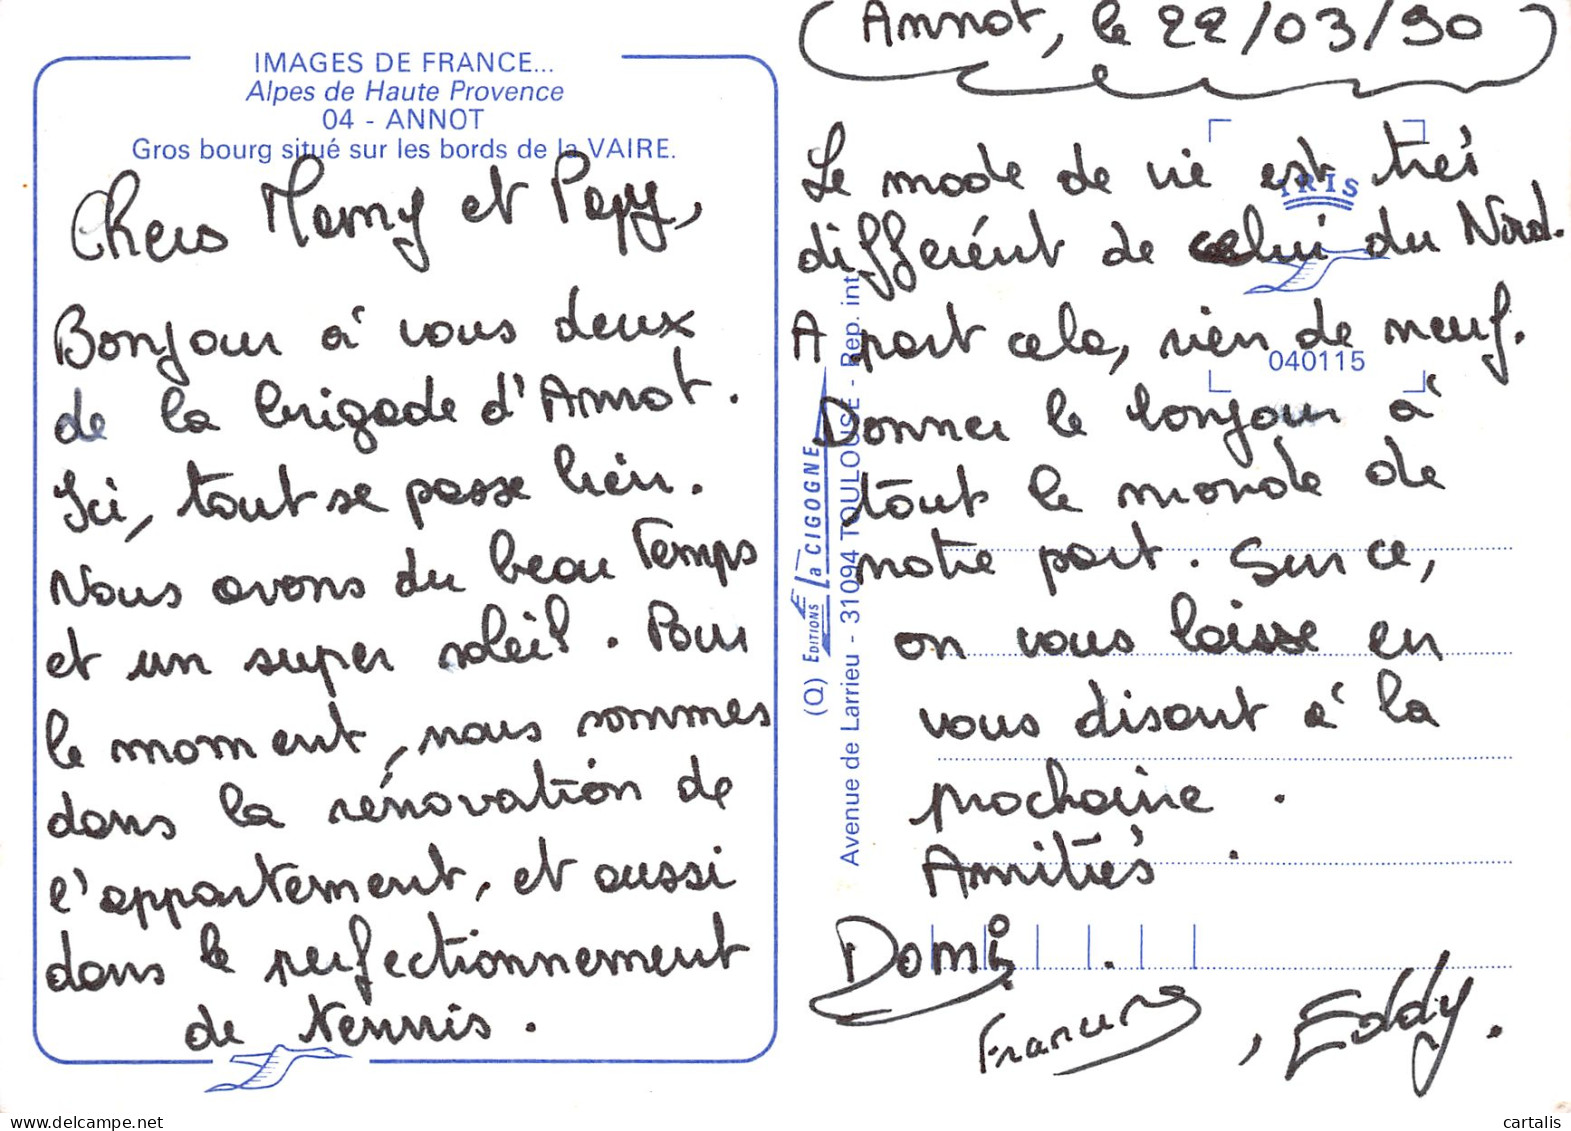 IMAGES DE FRANCE...
Alpes de Haute Provence
04 - ANNOT
Gros bourg situé sur les bords de la VAIRE.
Chers Mamy et Papy,
Bonjour à vous deux
de la brigade d'Annot.
Ici, tout se passe bien.
Nous avons du beau temps
et un super soleil. Pour
le moment, nous sommes
dans la rénovation de
l'appartement, et aussi
dans le perfectionnement
de tennis.
(Q) EDITIONS La CIGOGNE
Avenue de Larrieu - 31094 TOULOUSE - Rep. int
Annot, le 22/03/90
IRIS
040115
Le mode de vie est très
différent de celui du Nord.
A part cela, rien de neuf.
Donner le bonjour à
tout le monde de
notre part. Sur ce,
on vous laisse en
vous disant à la
prochaine.
Amitiés.
Domi.
, Eddy.
cartalis